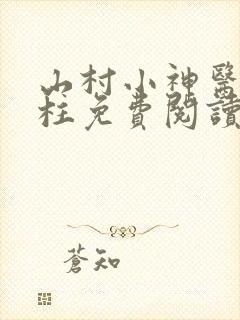 山村小神醫
柱免費閱讀
蒼知